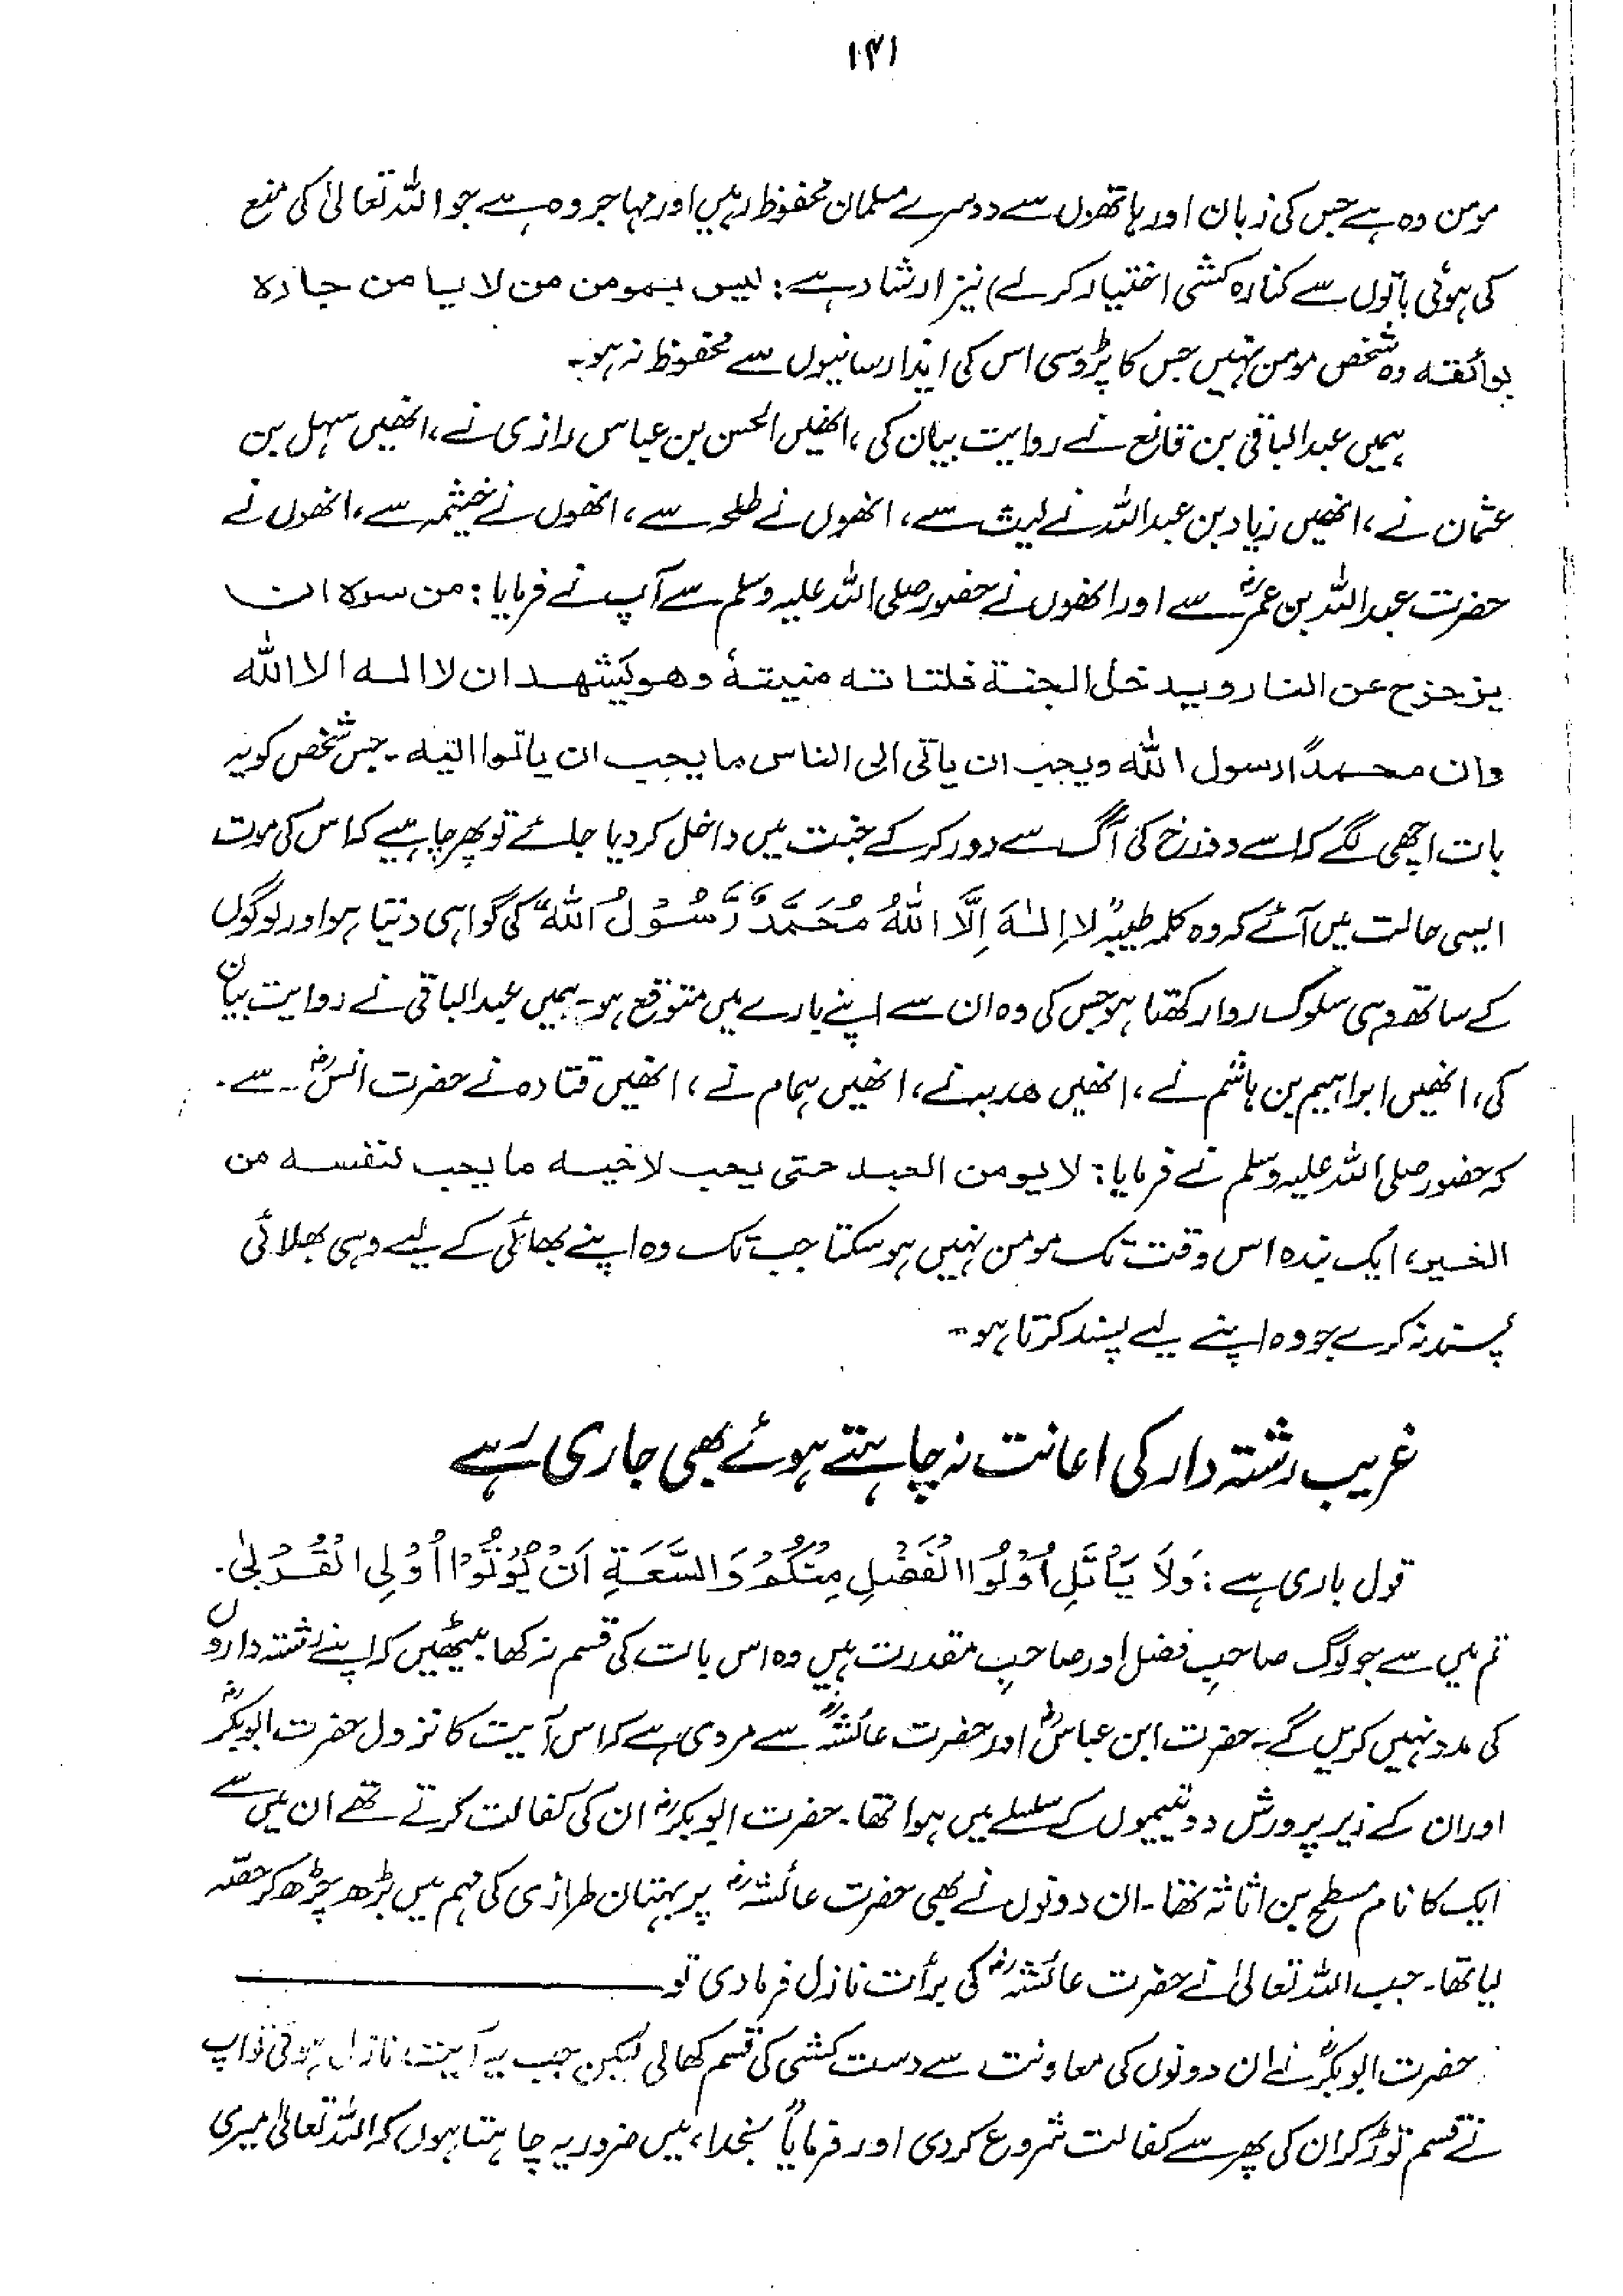 ۱۴۱
مومن وہ ہے جس کی زبان اور ہاتھوں سے دوسرے مسلمان محفوظ رہیں اور مہاجر وہ ہے جو اللہ تعالیٰ کی منع
کی ہوئی باتوں سے کنارہ کشی اختیار کر لے) نیز ارشاد ہے: لیس بمومن من لا یامن جارہ
بوائقہ وہ شخص مومن نہیں جس کا پڑوسی اس کی ایذا رسانیوں سے محفوظ نہ ہو۔
ہمیں عبدالباقی بن قانع نے روایت بیان کی، انھیں الحسن بن عباس رازی نے، انھیں سہل بن
عثمان نے، انھیں زیاد بن عبداللہ نے لیث سے، انھوں نے طلحہ سے، انھوں نے خیثمہ سے، انھوں نے
حضرت عبداللہ بن عمرؓ سے اور انھوں نے حضور صلی اللہ علیہ وسلم سے آپ نے فرمایا: من سرہ ان
یزحزح عن النار ویدخل الجنۃ فلتاتہ منیتہ وھو یشھد ان لا الہ الا اللہ
وان محمدًا رسول اللہ ویجب ان یاتی الی الناس ما یجب ان یاتوا الیہ۔ جس شخص کو یہ
بات اچھی لگے کہ اسے دوزخ کی آگ سے دور کر کے جنت میں داخل کر دیا جائے تو پھر چاہیے کہ اس کی موت
ایسی حالت میں آئے کہ وہ کلمہ طیبہ "لا اِلٰہَ اِلَّا اللہُ مُحَمَّدٌ رَّسُوْلُ اللہ" کی گواہی دیتا ہو اور لوگوں
کے ساتھ وہی سلوک روا رکھتا ہو جس کی وہ ان سے اپنے بارے میں متوقع ہو۔ ہمیں عبدالباقی نے روایت بیان
کی، انھیں ابراہیم بن ہاشم نے، انھیں ھدبہ نے، انھیں ہمام نے، انھیں قتادہ نے حضرت انسؓ۔ سے۔
کہ حضور صلی اللہ علیہ وسلم نے فرمایا: لا یومن العبد حتی یحب لاخیہ ما یحب لنفسہ من
الخیر، ایک بندہ اس وقت تک مومن نہیں ہو سکتا جب تک وہ اپنے بھائی کے لیے وہی بھلائی
پسند نہ کرے جو وہ اپنے لیے پسند کرتا ہو۔
غریب رشتہ دار کی اعانت نہ چاہتے ہوئے بھی جاری رہے
قول باری ہے: وَلَا یَأْتَلِ اُولُوا الْفَضْلِ مِنْکُمْ وَالسَّعَۃِ اَنْ یُّؤْتُوْا اُولِی الْقُرْبٰی۔
تم میں سے جو لوگ صاحبِ فضل اور صاحبِ مقدرت ہیں وہ اس بات کی قسم نہ کھا بیٹھیں کہ اپنے رشتہ داروں
کی مدد نہیں کریں گے۔ حضرت ابن عباسؓ اور حضرت عائشہؓ سے مروی ہے کہ اس آیت کا نزول حضرت ابوبکرؓ
اور ان کے زیر پرورش دو یتیموں کے سلسلے میں ہوا تھا۔ حضرت ابوبکرؓ ان کی کفالت کرتے تھے ان میں سے
ایک کا نام مسطح بن اثاثہ تھا۔ ان دونوں نے بھی حضرت عائشہؓ پر بہتان طرازی کی مہم میں بڑھ چڑھ کر حصّہ
لیا تھا۔ جب اللہ تعالیٰ نے حضرت عائشہؓ کی برأت نازل فرما دی تو
حضرت ابوبکرؓ نے ان دونوں کی معاونت سے دست کشی کی قسم کھالی لیکن جب یہ آیت نازل ہوئی تو آپ
نے قسم توڑ کر ان کی پھر سے کفالت شروع کردی اور فرمایا "بخدا، میں ضرور یہ چاہتا ہوں کہ اللہ تعالیٰ میری